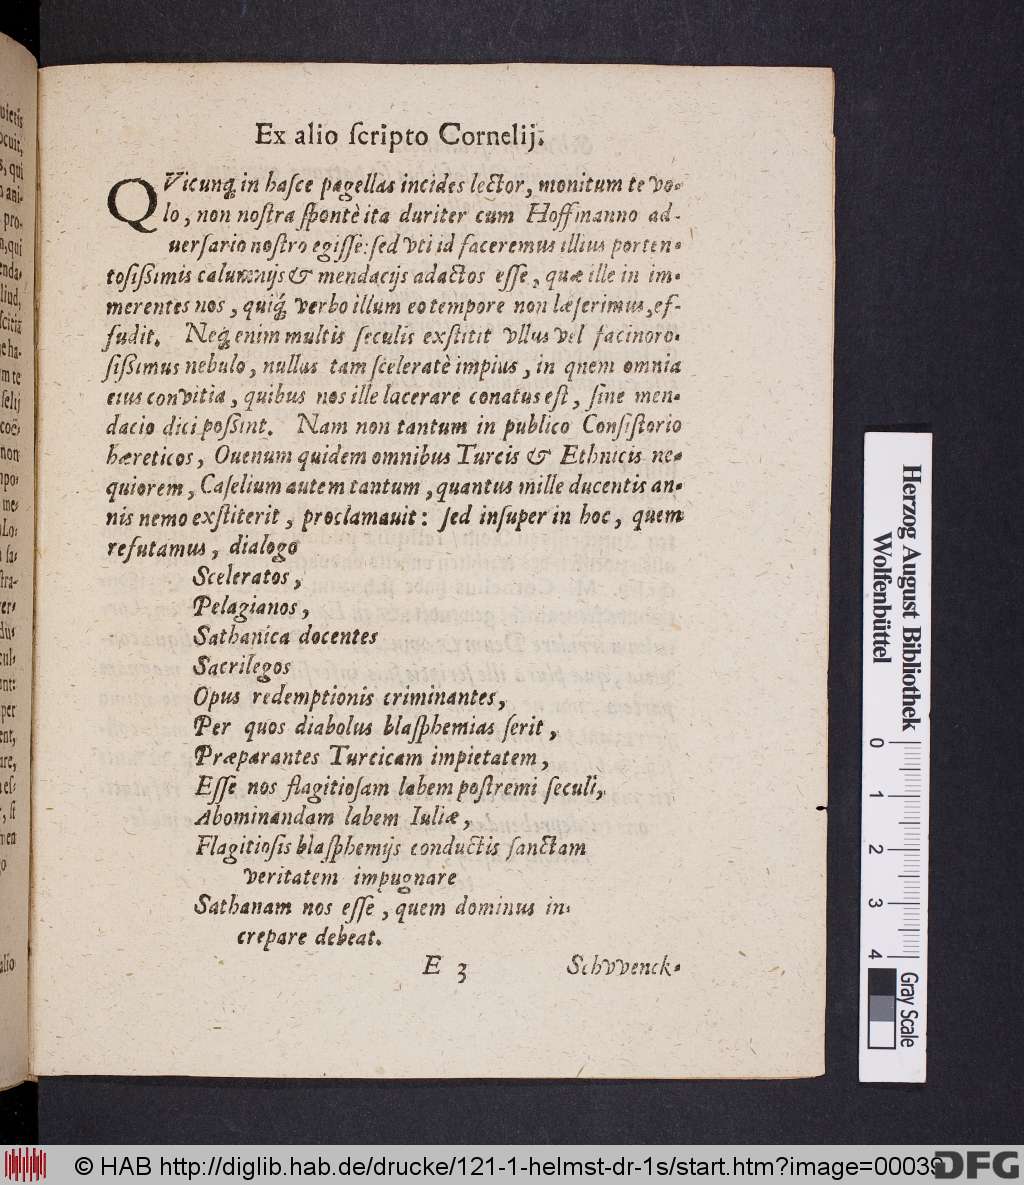 Ex alio ſcripto Cornelij.
QVicunq́; in haſce pagellas incides lector, monitum te vo-
lo, non noſtra ſpontè ita duriter cum Hoffmanno ad-
uerſario noſtro egiſſe: ſed vti id faceremus illius porten-
toſiſſimis calumnijs & mendacijs adactos eſſe, quæ ille in im-
merentes nos, quiq́; verbo illum eo tempore non læſerimus, ef-
fudit. Neq; enim multis ſeculis exſtitit vllus vel facinoro-
ſiſſimus nebulo, nullus tam ſceleratè impius, in quem omnia
eius convitia, quibus nos ille lacerare conatus eſt, ſine men-
dacio dici poſſint. Nam non tantum in publico Conſiſtorio
hæreticos, Ouenum quidem omnibus Turcis & Ethnicis ne-
quiorem, Caſelium autem tantum, quantus mille ducentis an-
nis nemo exſtiterit, proclamauit: ſed inſuper in hoc, quem
refutamus, dialogo
Sceleratos,
Pelagianos,
Sathanica docentes
Sacrilegos
Opus redemptionis criminantes,
Per quos diabolus blaſphemias ſerit,
Præparantes Turcicam impietatem,
Eſſe nos flagitioſam labem poſtremi ſeculi,
Abominandam labem Iuliæ,
Flagitioſis blaſphemijs conductis ſanctam
veritatem impugnare
Sathanam nos eſſe, quem dominus in-
crepare debeat.
E 3 Schvvenck-
Herzog August Bibliothek
Wolfenbüttel
0 1 2 3 4
Gray Scale
© HAB http://diglib.hab.de/drucke/121-1-helmst-dr-1s/start.htm?image=00039
DFG